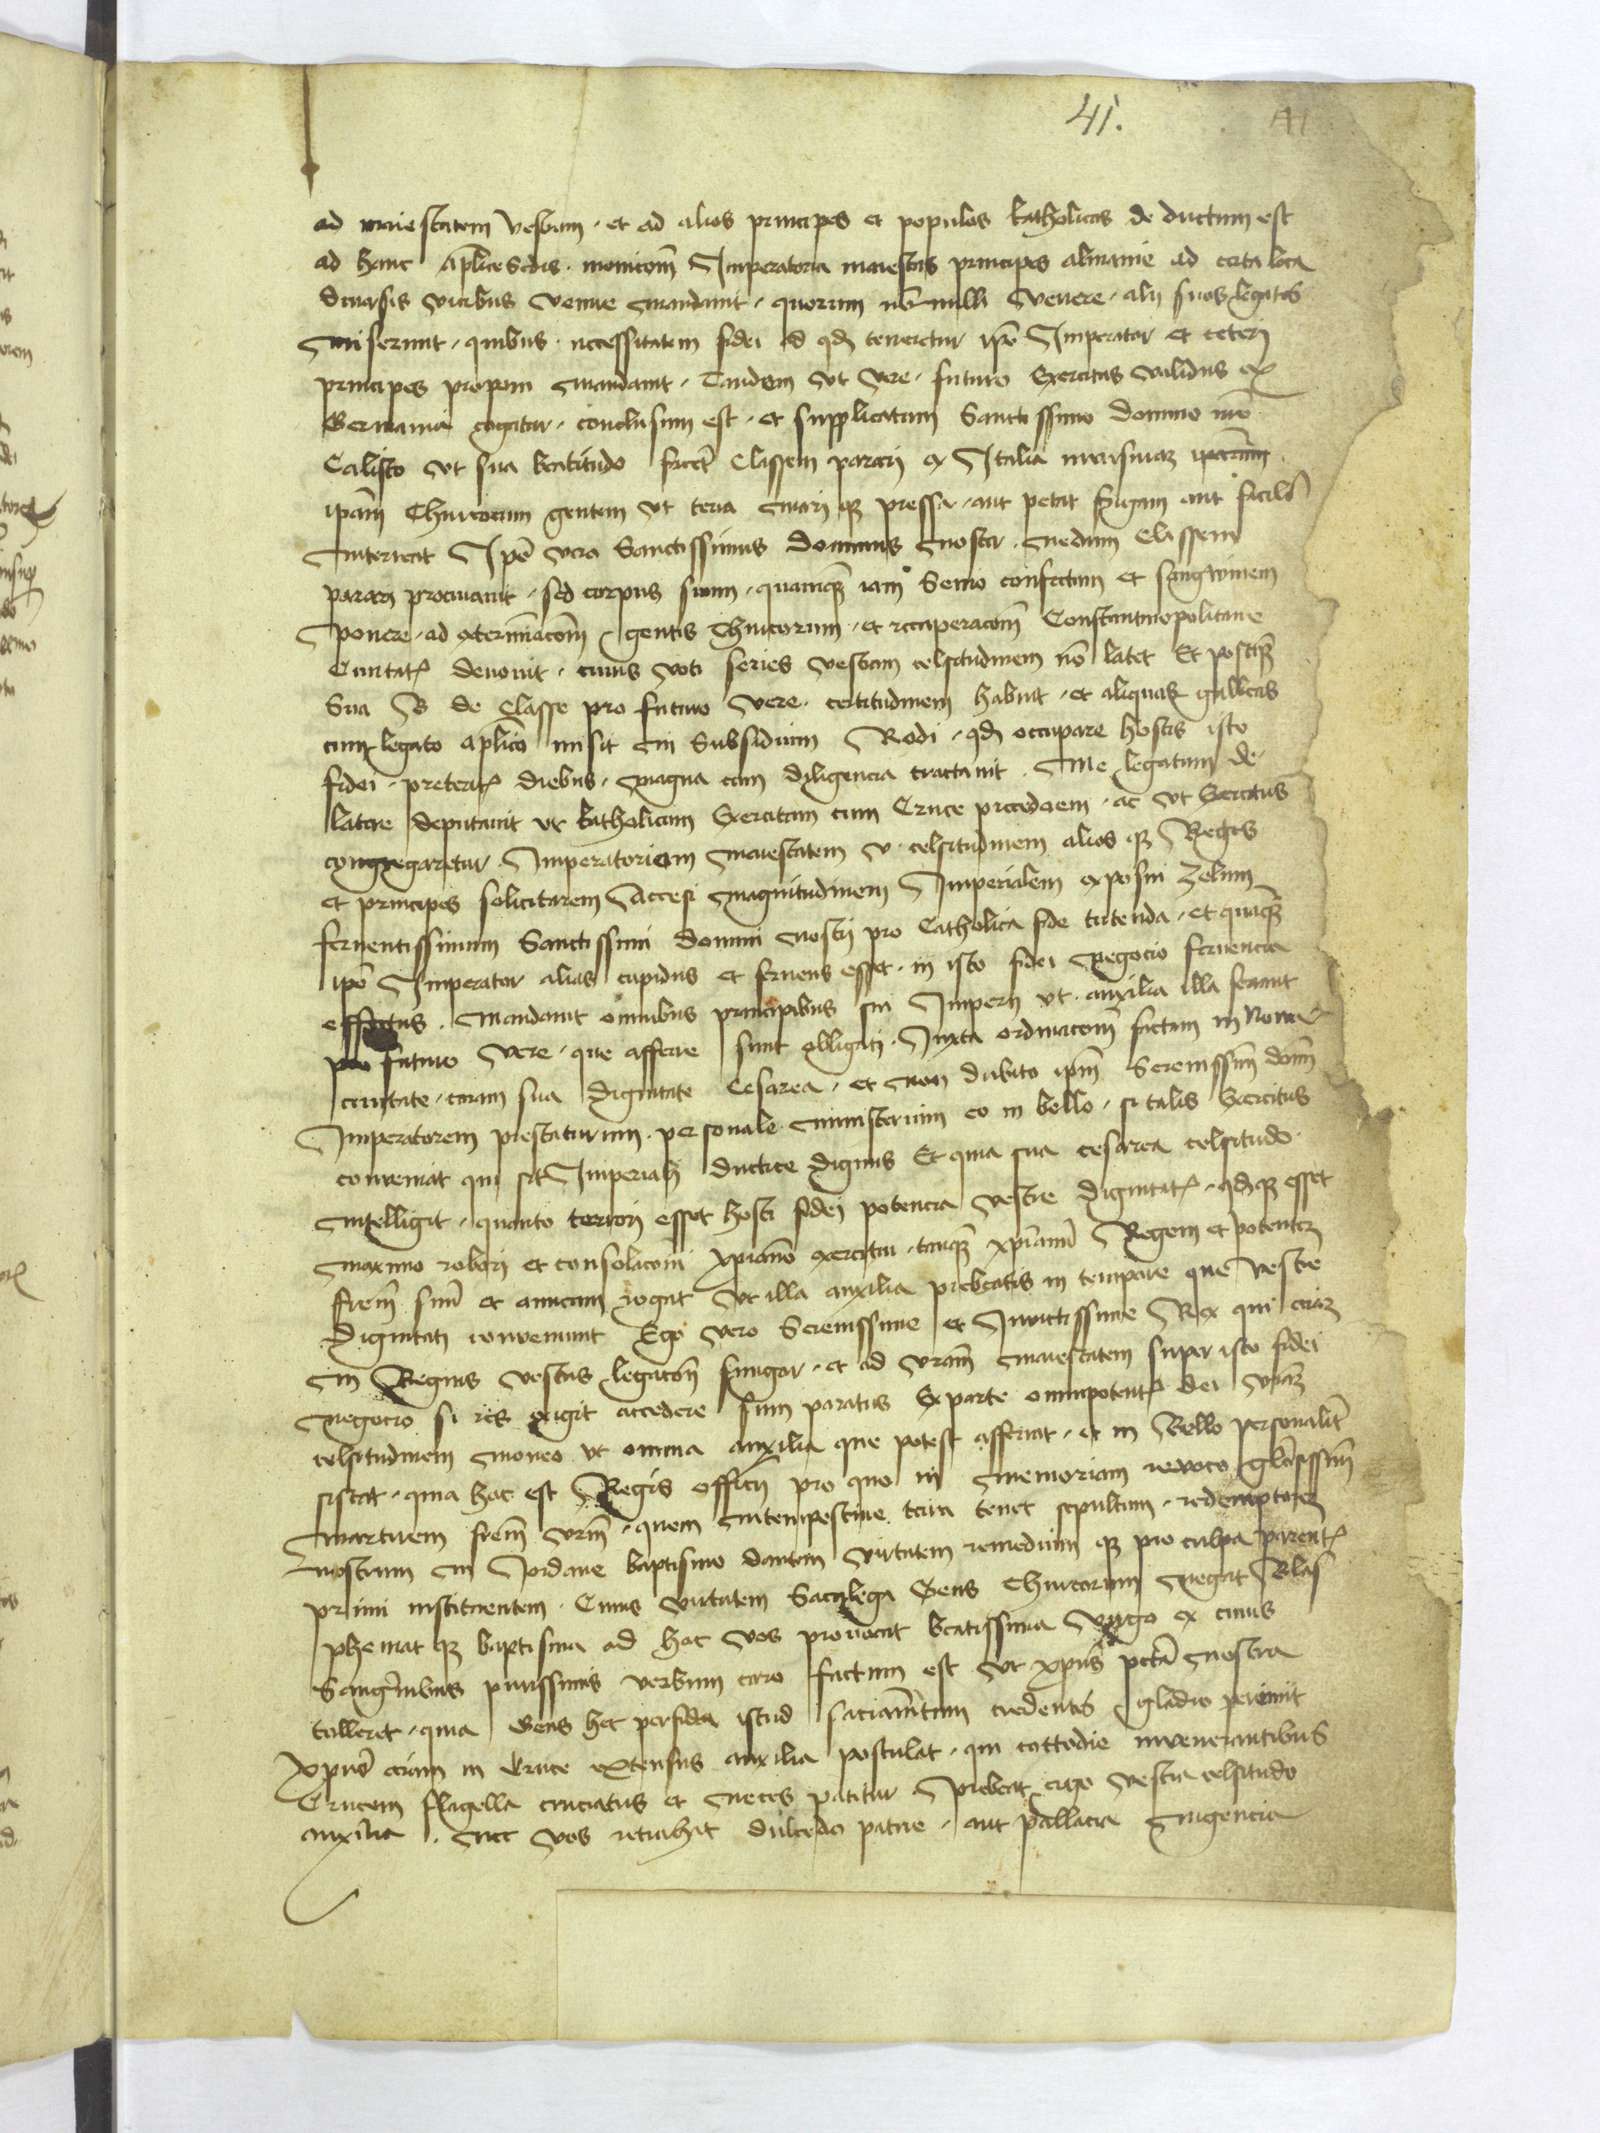 41.
ad maiestatem vestram · et ad alios principes et populos katholicos de ductum est
ad hanc Aplice Sedis · monicom̄ Imperatoria maiestas principes almanie ad certa loca
diuersis vicibus venire mandauit · quorum nōnulli venere · alij suos legatos
miserunt · quibus · necessitatem fidei id qd teneretur ipē Imperator et ceteri
principes proponi mandauit · Tandem vt vere · futuro Exercitus validus ex
Germania cogatur · conclusum est · et supplicatum Sanctissimo domino nrō
Calisto vt sua beatitudo faceret Classem parari ex Italia
ipām Thurcorum gentem vt terra mari qz pressa · aut petat fugam aut facilē
intereat Ipē vero Sanctissimus Dominus noster · nedum Classem
parari procurauit · sed corpus suum · quamqz iam Senio confectum et sangwinem
ponere · ad exterminacōm gentis Thurcorum · et recuperacōm Constantinopolitane
Ciuitatis deuouit · cuius voti series vestram celsitudinem nō latet Et postqz
Sua B de Classe pro futuro vere · certitudinem habuit · et aliquas galleas
cum legato aplico misit in Subsidium Rodi · qd occupare hostis isto
fidei · preteritis diebus · magna cum diligencia tractauit · Me legatum de
latere deputauit vt katholicum Exercitum cum Cruce precedem · ac vt Exercitus
congregaretur · Imperatoriam maiestatem v · celsitudinem alios qz Reges
et principes solicitarem Accesi magnitudinem Imperialem exposui zelum
feruentissimum Sanctissimi domini nostri pro Catholica fide tutenda · et quaqz
ipē Imperator alias cupidus et feruens esset · in isto fidei negocio feruencia
effectus · mandauit omnibus principibus sui Imperij vt · auxilia illa ferant
pro futuro vere · que afferre sunt obligati · Iuxta ordinacōm factam in Noua
ciuitate · coram sua dignitate Cesarea · et non dubito ipm Serenissim domm
Imperatorem prestaturum · personale ministerium eo in bello · si talis Exercitus
conueniat qui sit Imperiali ductice dignus Et quia sua cesarea celsitudo
intelligit · quanto terrori esset hosti fidei potencia vestre dignitatis · qdqz esset
maximo robori et consolacōni xpiano exercitui · tanqz xpianū Regem et potentem
frem̄ suū et amicum rogat vt illa auxilia prebeatis in tempore que vestre
dignitati conueniunt Ego vero Serenissime et Inuictissime Rex qui eciam
in Regnis vestris legacōn fungor · et ad vram̄ maiestatem super isto fidei
negocio si res exigit accedere sum paratus Exparte omnipotentis dei vram
celsitudinem moneo vt omnia auxilia que potest afferat · et in Bello personalit
sistat · quia hoc est Regis officij pro quo in memoriam reuoco gloriosissim
martirem frem̄ vrm̄ · quem intempestiue terra tenet sepultum · redemptorem
nostrum in Jordane baptismo dantem virtutem remedium qz pro culpa parentis
primi instituentem · Cuius virtutem Sacrilega Gens Thurcorum negat Blas
phemat qz baptisma ad hoc vos prouocat beatissima virgo ex cuius
Sanguinibus purissimis verbum caro factum est vt xpus pctā nostra
tolleret · quia Gens hec perfida istud sacramtum credentes gladio perimit
xpus eciam in Cruce extensus auxilia postulat · qui cottidie inuenerantibus
Crucem flagella cruciatus et neces patitur Prebeat ergo vestra celsitudo
auxilia · nec vos retrahat dulcedo patrie · aut pallacia ingencia